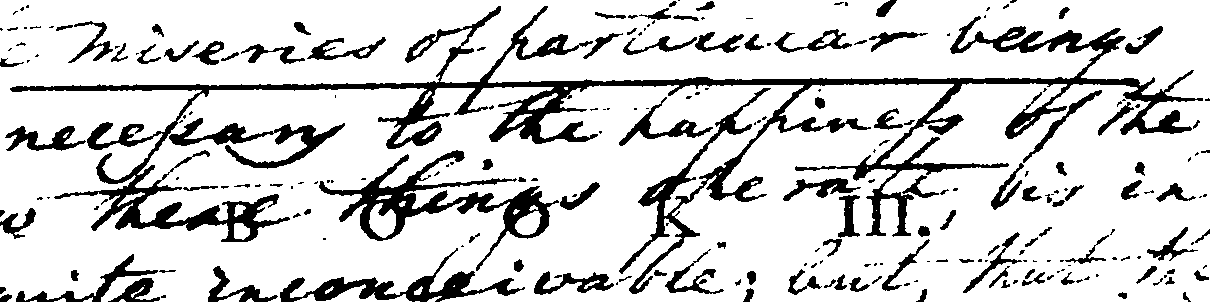 miseries of particular beings
necessary to the happiness of the
these things operate, tis in
B O O K III.
quite inconceivable; but, that the